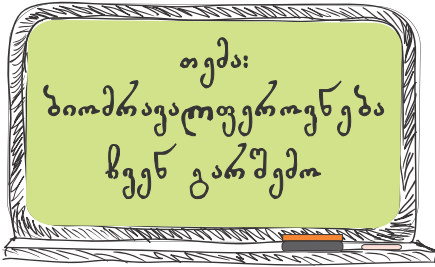 თემა:
ბიომრავალფეროვნება
ჩვენ გარშემო